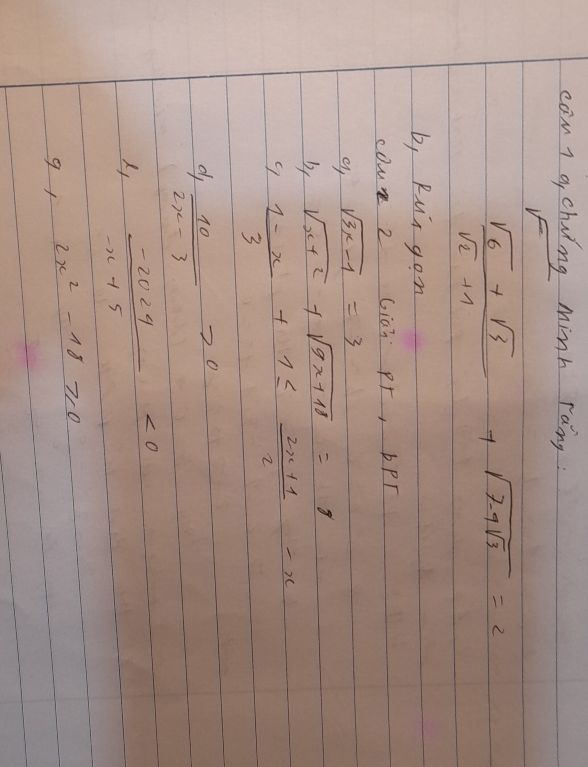 Câu 1 a, chứng minh rằng:
√
(√6 + √3)/(√2 + 1) + √(7-4√3) = 2
b, Rút gọn
câu 2 Giải PT, bPT
a, √(3x-1) = 3
b, √(x+2) + √(9x+18) = 8
c, (1-x)/3 + 1 ≤ (2x+1)/2 - x
d, 10/(2x-3) > 0
f, -2024/(-x+5) < 0
g, 2x² - 18 ≥ 0